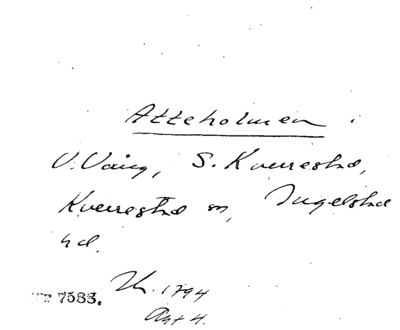 Atteholmen
V. Vång, S. Kverrestad,
Kverrestad sn, Ingelstad
hd.
7583. 1794
Akt 4.